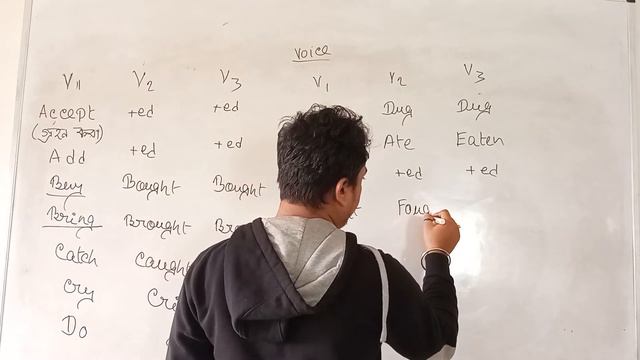 Voice
V1 V2 V3 V1 V2 V3
Accept +ed +ed Dug Dug
(গ্রহন করা)
Add +ed +ed Ate Eaten
+ed +ed
Buy Bought Bought
Bring Brought Foug
Catch Caught
Cry
Do